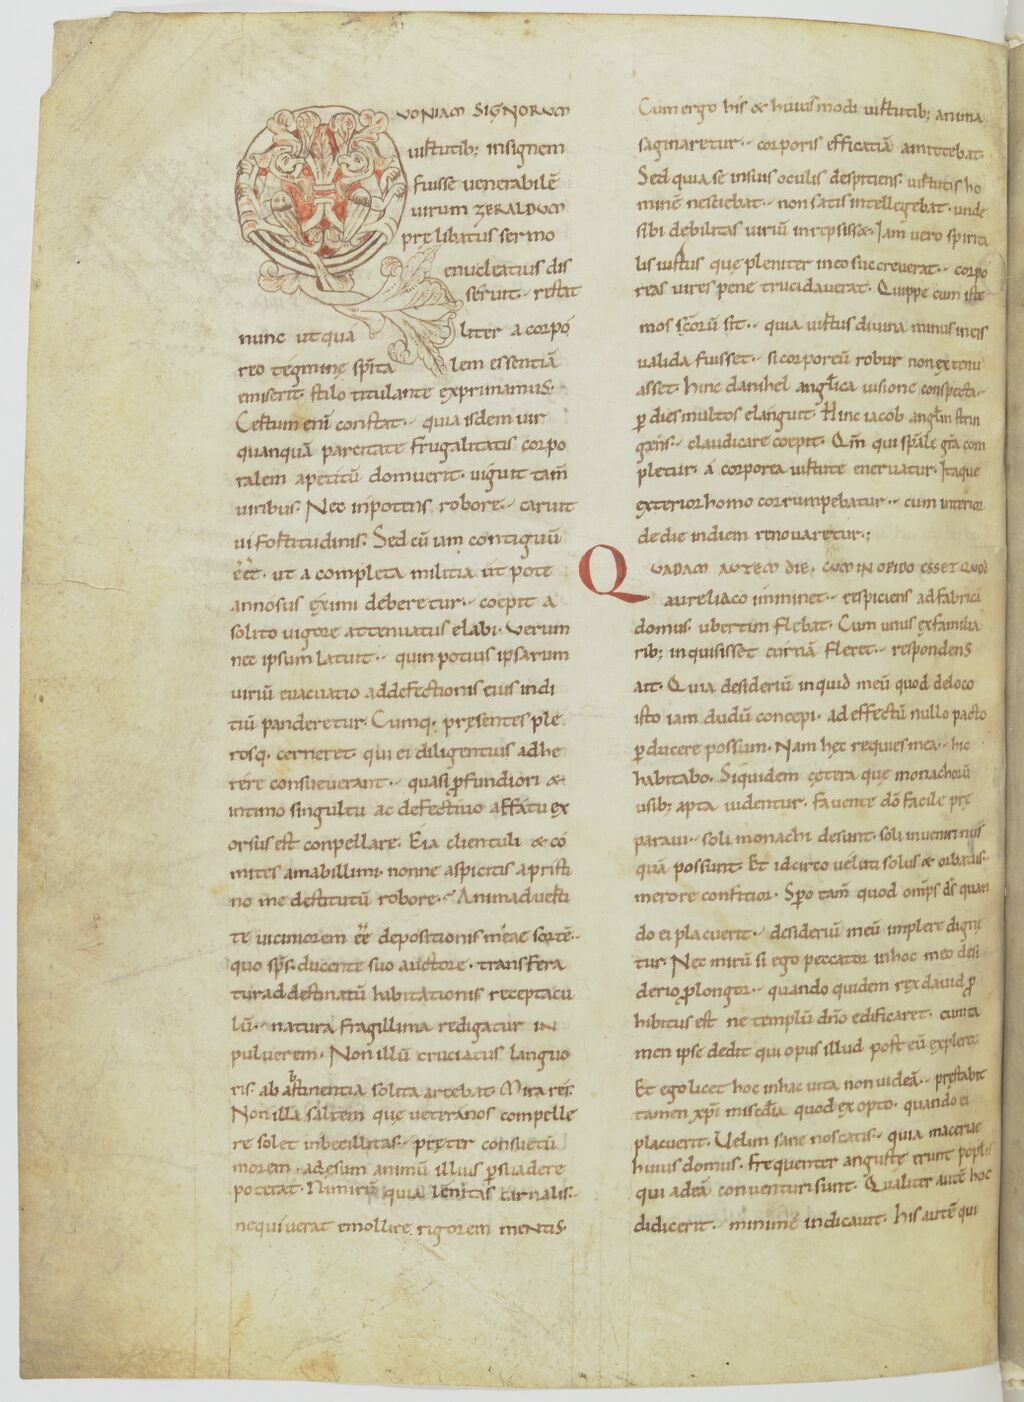 QVONIAM SIGNORVM
uirtutib; insignem
fuisse uenerabilē
uirum ZERALDVM
prę libatus sermo
enucleatius dis
seruit. restat
nunc ut qua liter a corpo
reo tegmine sp̄ita lem essentiā
emiserit. stilo titulante exprimamus.
Certum eni constat. quia isdem uir
quanquā parcitate frugalitatis corpo
ralem apetitū domuerit. uiguit tam̄
uiribus. Nec inpotens robore. caruit
ui fortitudinis. Sed cū iam contiguū
eēt. ut a completa militia ut pote
annosus eximi deberetur. coepit a
solito uigore attenuatus elabi. Verum
nec ipsum latuit. quin potius ipsarum
uiriū euacuatio ad defectionis eius indi
tiū panderetur. Cumq. pręsentes ple
rosq. cerneret. qui ei diligentius adhe
rere consueuerant. quasi ꝓfundiori &
intimo singultu ac defectiuo affatu ex
orsus est conpellare. Eia clientuli & co
mites amabillimi. nonne aspicitis a pristi
no me destitutū robore. Animaduerti
te uiciniorem eē depositionis meae sortē.
quo sp̄s. ducente suo auctore. transfera
tur ad destinatū habitationis receptacu
lū. natura fragillima redigatur IN
puluerem. Non illū cruciatus languo
ris. ab abstinentia solita arcebat. Mira res.
Non illa saltem quę ueteranos compelle
re solet inbecillitas. pręter consuetū
morem. ad esum animū illius ꝑsuadere
poterat. Nimirū quia lenitas carnalis.
nequiuerat emollire rigorem mentis.
Cum ergo his & huiusmodi uirtutib; anima
saginaretur. corporis efficatiā amittebat.
Sed quia se insuis oculis despitiens. uirtutis ho
minē nesciebat. non satis intellegebat. unde
sibi debilitas uiriū inrepsiss&. Iam uero spirita
lis uirtus quę pleniter in eo succreuerat. corpo
reas uires pene trucidauerat. Quippe cum iste
mos sc̄orū sit. quia uirtus diuina minus in eis
ualida fuisset. si corporeū robur non extenu
asset. Hinc danihel anglica uisione conspecta.
ꝑ dies multos elanguit. Hinc iacob anglm̄ strin
gens. claudicare coepit. Qm̄ qui spāle gr̄a com
pletur. a corporea uirtute eneruatur. Itaque
exterior homo corrumpebatur. cum interior
de die in diem renouaretur.;
QVADAM AVTEM DIE. CVM IN OPIDO ESSET QVOD
AVRELIACO imminet. respiciens ad fabricā
domus. ubertim flebat. Cum unus ex familia
rib; inquisisset cur nā fleret. respondens
ait. Quia desideriū inquid meū quod de loco
isto iam dudū concepi. ad effectū nullo pacto
ꝑducere possum. Nam hęc requies mea. hic
habitabo. Siquidem cętera quę monachorū
usib; apta uidentur. fauente dō facile prę
paraui. soli monachi desunt. soli inueniri nus
quā possunt. Et idcirco ueluti solus & orbatus.
merore conficior. Spero tam̄ quod omp̄s ds̄ quan
do ei placuerit. desideriū meū implere digne
tur. Nec mirū si ego peccator in hoc meo desi
derio ꝓlongor. quando quidem rex dauid ꝓ
hibitus est ne templū dn̄o edificaret. cui ta
men ipse dedit qui opus illud post eū expleret.
Et ego licet hoc in hac uita non uideā. pręstabit
tamen xp̄i miscd̄ia quod ex opto. quando ei
placuerit. Uelim sane noscatis. quia maceriae
huius domus. frequenter angustę erunt popl̄is
qui ad eā conuenturi sunt. Qualiter autē hoc
didicerit. minimē indicauit. His autē qui